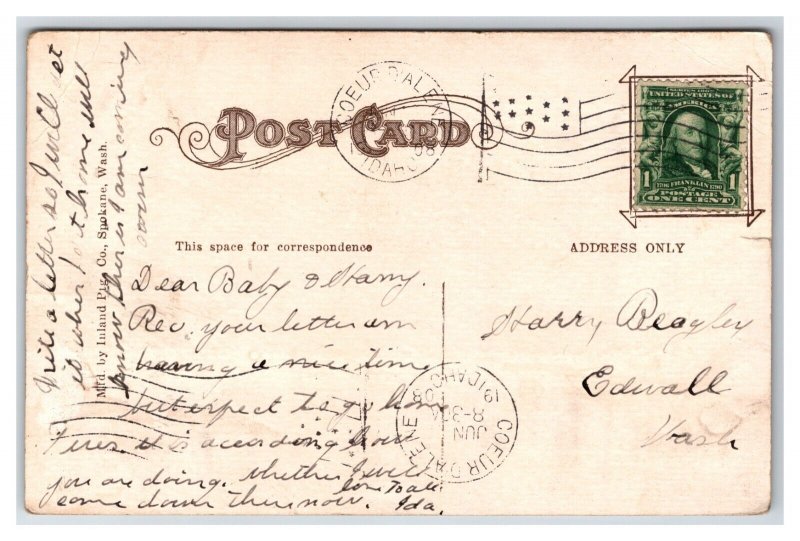 POST CARD
COEUR D'ALENE
IDAHO
SERIES 1902
UNITED STATES OF
AMERICA
1 1706 FRANKLIN 1790 1
POSTAGE
ONE CENT
This space for correspondence
ADDRESS ONLY
Dear Baby & Harry.
Rec. your letter am
having a nice time
but expect to go home
Tues. it is according how
you are doing. whether I will
come down there now. love to all
Ida.
Harry Beagley
Edwall
Wash
COEUR D'ALENE
JUN
8-30
19
08
IDAHO
Write a letter so I will get
it when I get home will
know there is I am coming
soon
Mfd. by Inland Ptg. Co., Spokane, Wash.